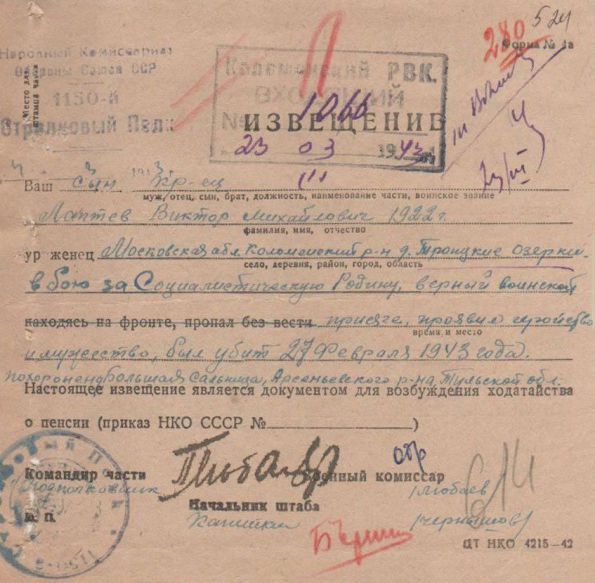 524
280
Форма № 4а
Народный Комиссариат
Обороны Союза ССР
Место для
штампа части
1150-й
Стрелковый Полк
Коломенский РВК
ВХОДЯЩИЙ
№ 1066
ИЗВЕЩЕНИЕ
23 03 1943 г.
Ваш сын кр-ец
муж, отец, сын, брат, должность, наименование части, воинское звание
Лаптев Виктор Михайлович 1922г.
фамилия, имя, отчество
уроженец Московская обл. Коломенский р-н д. Троицкие Озерки
село, деревня, район, город, область
в бою за Социалистическую Родину, верный воинской
находясь на фронте, пропал без вести присяге, проявив геройство
время и место
и мужество, был убит 27 февраля 1943 года.
похоронен Большая Сальница, Арсеньевского р-на, Тульской обл.
Настоящее извещение является документом для возбуждения ходатайства
о пенсии (приказ НКО СССР № )
Командир части
Военный комиссар
Подполковник
М. П.
Начальник штаба
Капитан
(Чернышов)
ЦТ НКО 4215—42